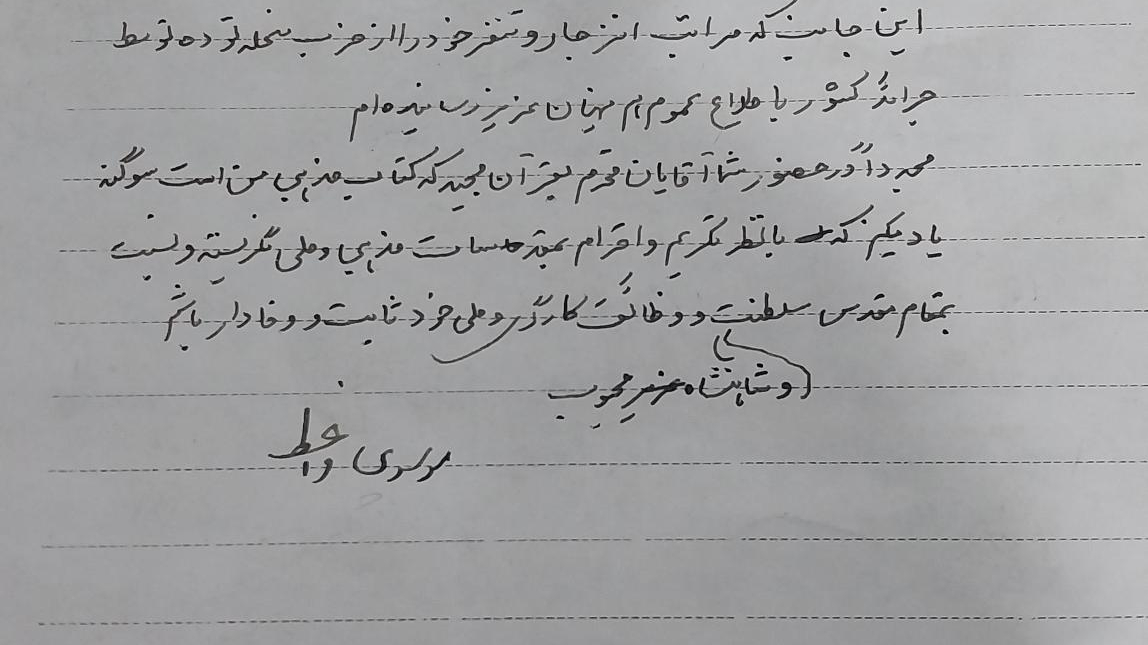 این جانب که مراتب انزجار و تنفر خود را از حزب منحله توده توسط
جرائد کشور باطلاع عموم هم میهنان عزیز رسانیده‌ام
مجدداً در حضور شما آقایان محترم بقرآن مجید که کتاب مذهبی من است سوگند
یاد میکنم که با نظر تکریم و احترام بمقدسات مذهبی و ملی نگریسته و نسبت
بمقام مقدس سلطنت و وظائف کارگری و ملی خود ثابت و وفادار باشم
(و شاهنشاه عزیز محبوب
موسوی واعظ